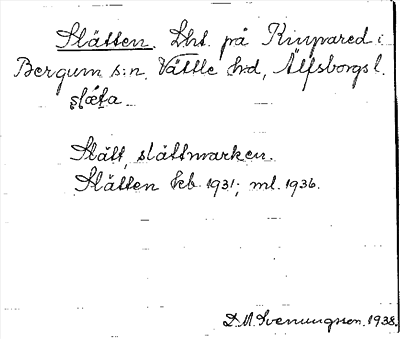 Slätten. Lht. på Kinnared i
Bergum s:n. Vättle hd, Älfsborgs l.
slǽta
Slått, slåttmarken.
Slätten kb. 1931; ml. 1936.
D.M. Svenungsson. 1938.